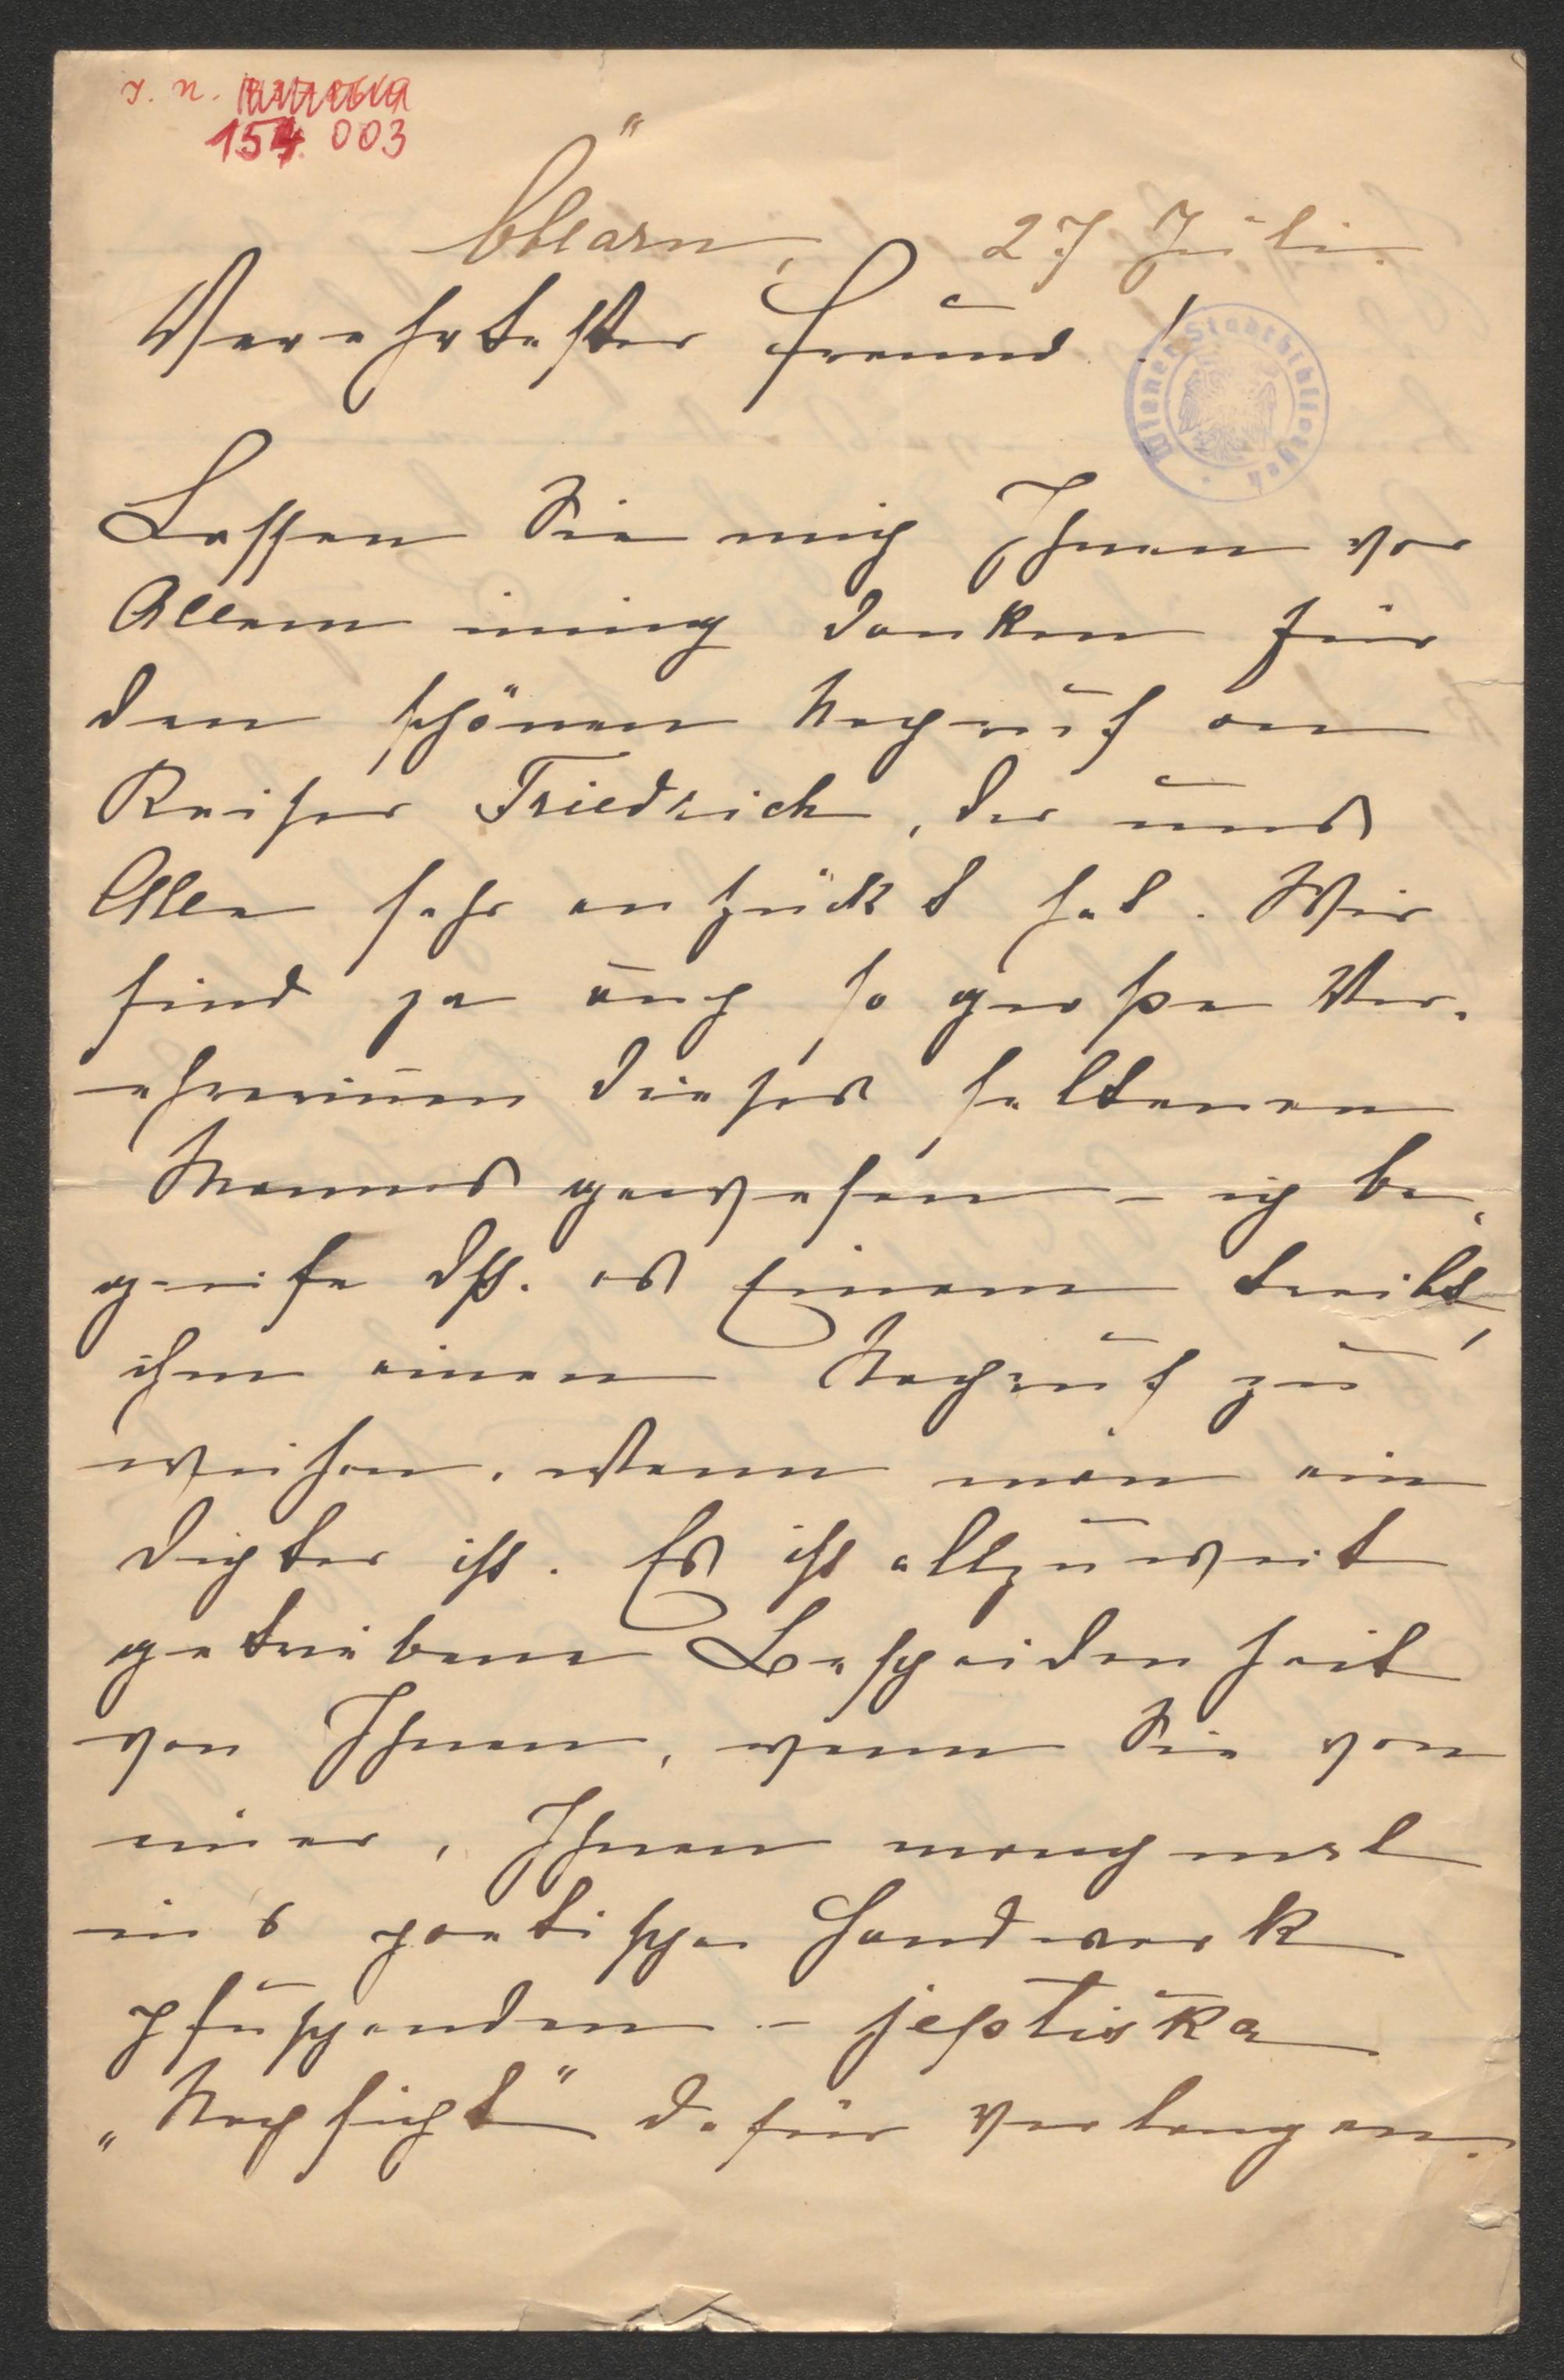 I. N.
154 003
Öblarn, 27 Juli.
Verehrtester Freund!
Wiener Stadtbibliothek
Lassen Sie mich Ihnen vor
Allem innig danken für
den schönen Nachruf an
Kaiser Friedrich, der uns
Alle sehr entzückt hat. Wir
sind ja auch so große Ver-
ehrerinnen dieses seltenen
Mannes gewesen – ich be-
greife dß. es Einem treibt,
ihm einen Nachruf zu
weihen, wenn man ein
Dichter ist. Es ist allzuweit
getriebene Bescheidenheit
von Ihnen, wenn Sie von
einer, Ihnen manchmal
in's poetische Handwerk
pfuschenden –
„Nachsicht" dafür verlangen.